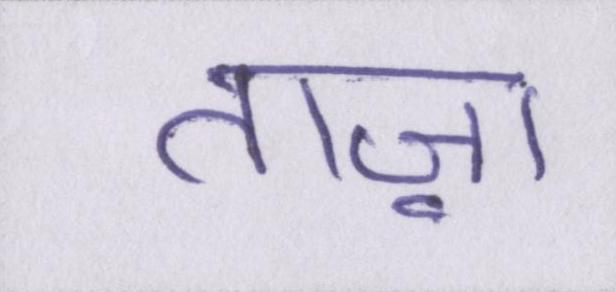 ताज़ा